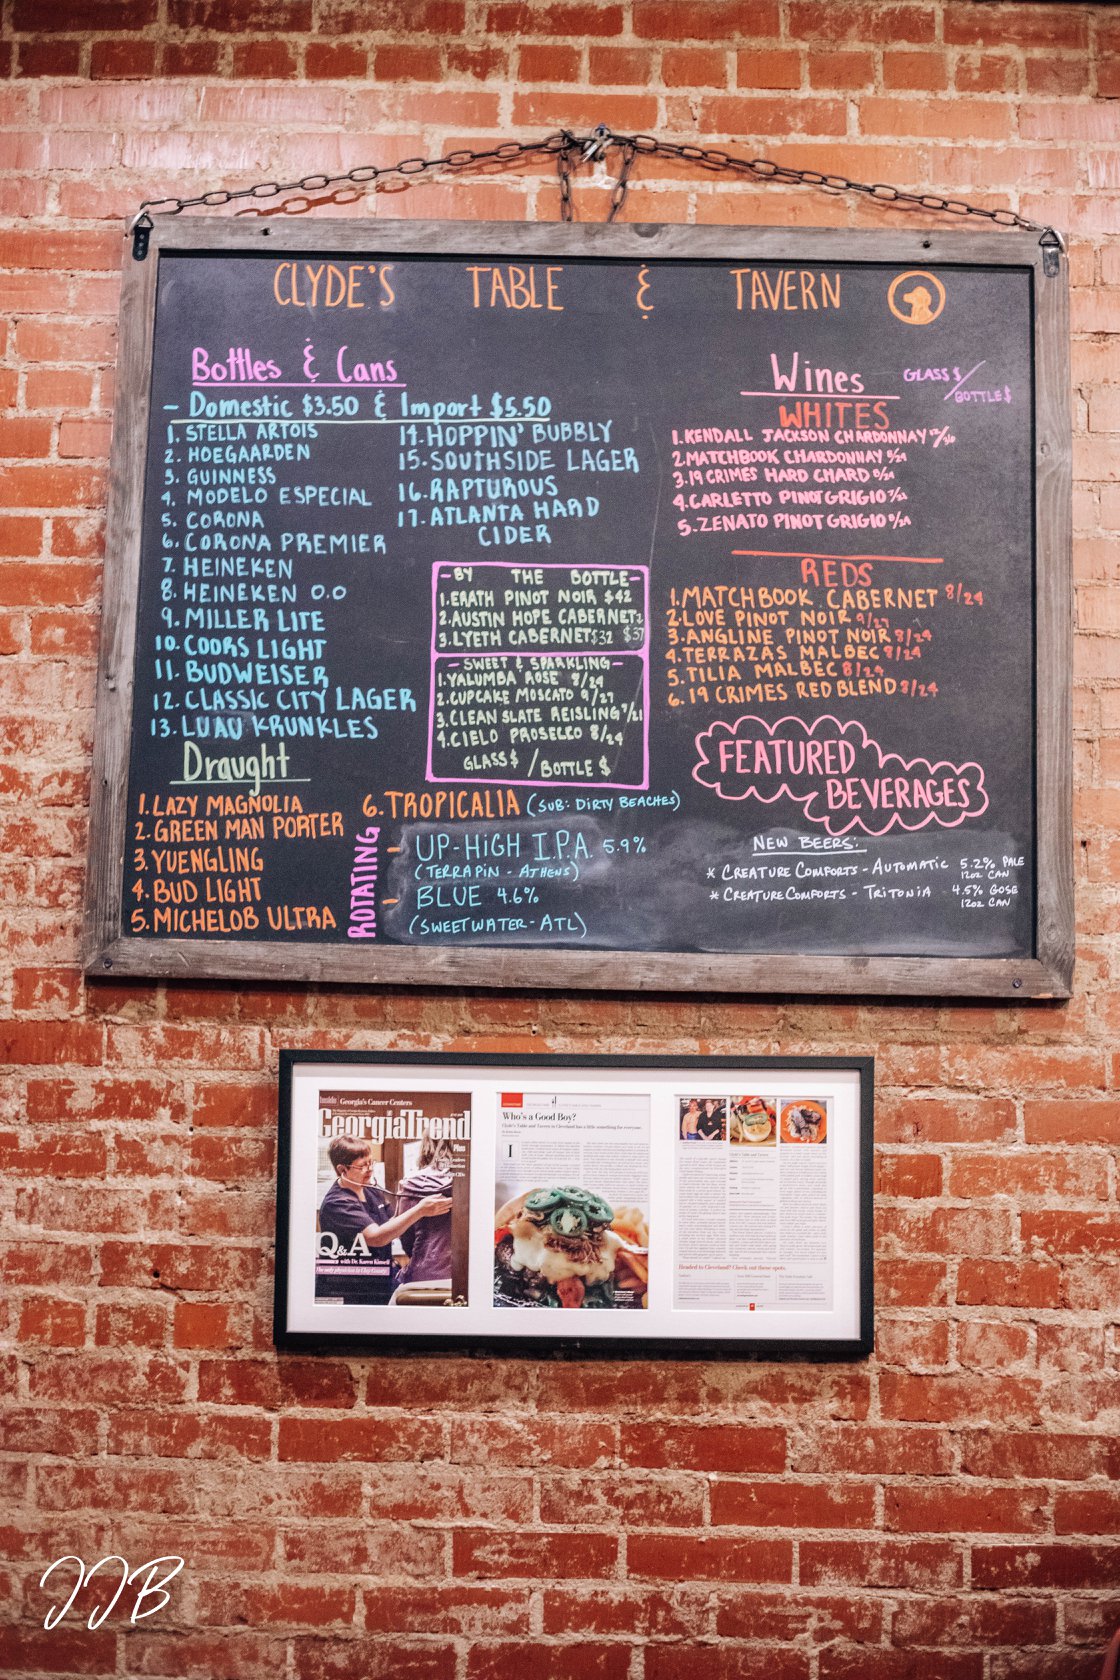 CLYDE'S TABLE & TAVERN
Bottles & Cans
- Domestic $3.50 & Import $5.50
1. STELLA ARTOIS
2. HOEGAARDEN
3. GUINNESS
4. MODELO ESPECIAL
5. CORONA
6. CORONA PREMIER
7. HEINEKEN
8. HEINEKEN 0.0
9. MILLER LITE
10. COORS LIGHT
11. BUDWEISER
12. CLASSIC CITY LAGER
13. LUAU KRUNKLES
14. HOPPIN' BUBBLY
15. SOUTHSIDE LAGER
16. RAPTUROUS
17. ATLANTA HARD
CIDER
- BY THE BOTTLE -
1. ERATH PINOT NOIR $42
2. AUSTIN HOPE CABERNET
3. LYETH CABERNET $32 $37
- SWEET & SPARKLING -
1. YALUMBA ROSE 8/29
2. CUPCAKE MOSCATO 9/27
3. CLEAN SLATE REISLING 7/21
4. CIELO PROSECCO 8/24
GLASS $ / BOTTLE $
Wines
GLASS $ / BOTTLE $
WHITES
1. KENDALL JACKSON CHARDONNAY 12/36
2. MATCHBOOK CHARDONNAY
3. 19 CRIMES HARD CHARD
4. CARLETTO PINOT GRIGIO
5. ZENATO PINOT GRIGIO
REDS
1. MATCHBOOK CABERNET 8/29
2. LOVE PINOT NOIR 9/27
3. ANGLINE PINOT NOIR 8/29
4. TERRAZAS MALBEC 8/29
5. TILIA MALBEC 8/29
6. 19 CRIMES RED BLEND 8/24
FEATURED
BEVERAGES
NEW BEERS:
* CREATURE COMFORTS - AUTOMATIC 5.2% PALE
12oz CAN
* CREATURE COMFORTS - TRITONIA 4.5% GOSE
12oz CAN
Draught
1. LAZY MAGNOLIA
2. GREEN MAN PORTER
3. YUENGLING
4. BUD LIGHT
5. MICHELOB ULTRA
6. TROPICALIA (SUB: DIRTY BEACHES)
ROTATING
- UP-HIGH I.P.A. 5.9%
(TERRAPIN - ATHENS)
- BLUE 4.6%
(SWEETWATER - ATL)
Georgia's Cancer Centers
GeorgiaTrend
Plus
Q&A
with Dr. Karen Kinsell
The only physician in Clay County
Who's a Good Boy?
Clyde's Table and Tavern in Cleveland has a little something for everyone.
Headed to Cleveland? Check out these spots.
JJB